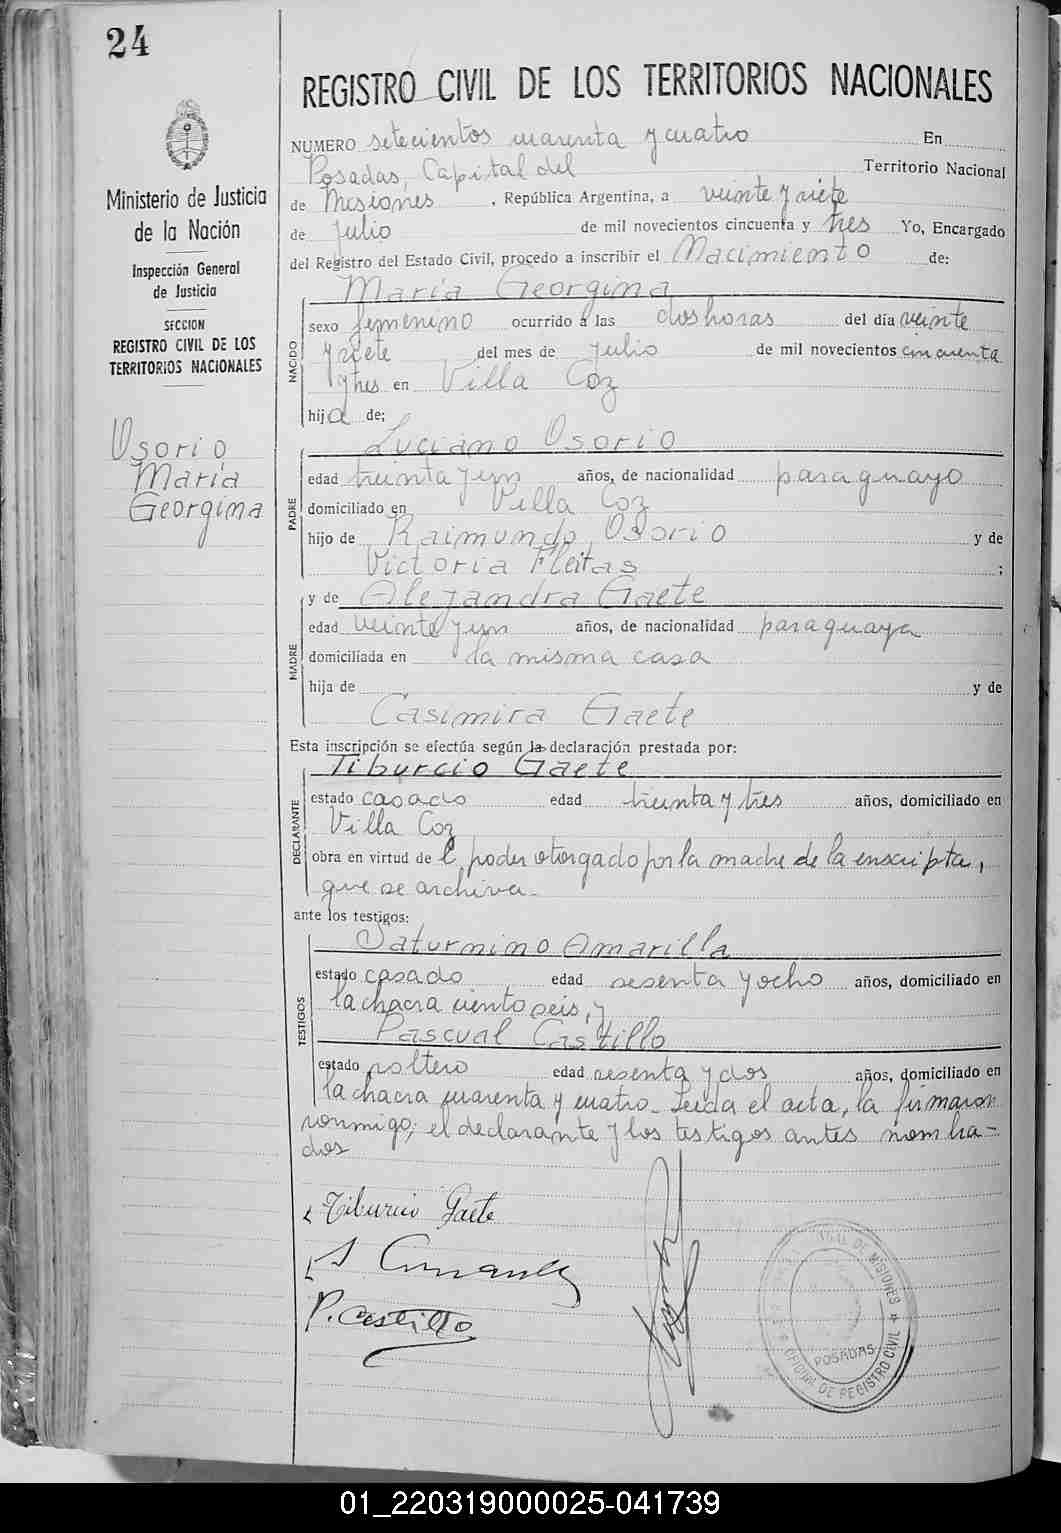 24
REGISTRO CIVIL DE LOS TERRITORIOS NACIONALES
Ministerio de Justicia
de la Nación
Inspección General
de Justicia
SECCION
REGISTRO CIVIL DE LOS
TERRITORIOS NACIONALES
Osorio
María
Georgina
NUMERO setecientos cuarenta y cuatro En
Posadas, Capital del Territorio Nacional
de Misiones, República Argentina, a veinte y siete
de julio de mil novecientos cincuenta y tres Yo, Encargado
del Registro del Estado Civil, procedo a inscribir el Nacimiento de:
NACIDO
María Georgina
sexo femenino ocurrido a las dos horas del día veinte
y siete del mes de julio de mil novecientos cincuenta
y tres en Villa Coz
hija de;
PADRE
Luciano Osorio
edad treinta y un años, de nacionalidad paraguayo
domiciliado en Villa Coz
hijo de Raimundo Osorio y de
Victoria Fleitas ;
MADRE
y de Alejandra Gaete
edad veinte y un años, de nacionalidad paraguaya
domiciliada en la misma casa
hija de y de
Casimira Gaete
Esta inscripción se efectúa según la declaración prestada por:
DECLARANTE
Tiburcio Gaete
estado casado edad treinta y tres años, domiciliado en
Villa Coz
obra en virtud del poder otorgado por la madre de la inscripta,
que se archiva.
ante los testigos:
TESTIGOS
Saturnino Amarilla
estado casado edad sesenta y ocho años, domiciliado en
la chacra ciento seis, y
Pascual Castillo
estado soltero edad sesenta y dos años, domiciliado en
la chacra cuarenta y cuatro. Leída el acta, la firmaron
conmigo, el declarante y los testigos antes nombra-
dos
Tiburcio Gaete
P. Castillo
DE MISIONES
POSADAS
OFICIAL DE REGISTRO CIVIL
01_220319000025-041739